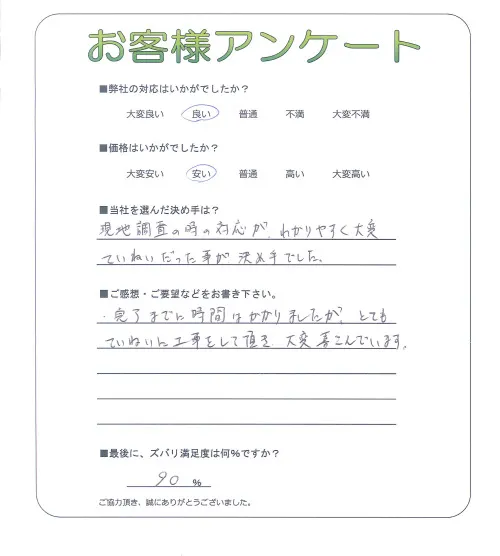 お客様アンケート
■弊社の対応はいかがでしたか？
大変良い 良い 普通 不満 大変不満
■価格はいかがでしたか？
大変安い 安い 普通 高い 大変高い
■当社を選んだ決め手は？
現地調査の時の対応が、わかりやすく大変
ていねいだった事が決め手でした。
■ご感想・ご要望などをお書き下さい。
・完了までに時間はかかりましたが、とても
ていねいに工事をして頂き、大変喜こんでいます。
■最後に、ズバリ満足度は何%ですか？
90 %
ご協力頂き、誠にありがとうございました。